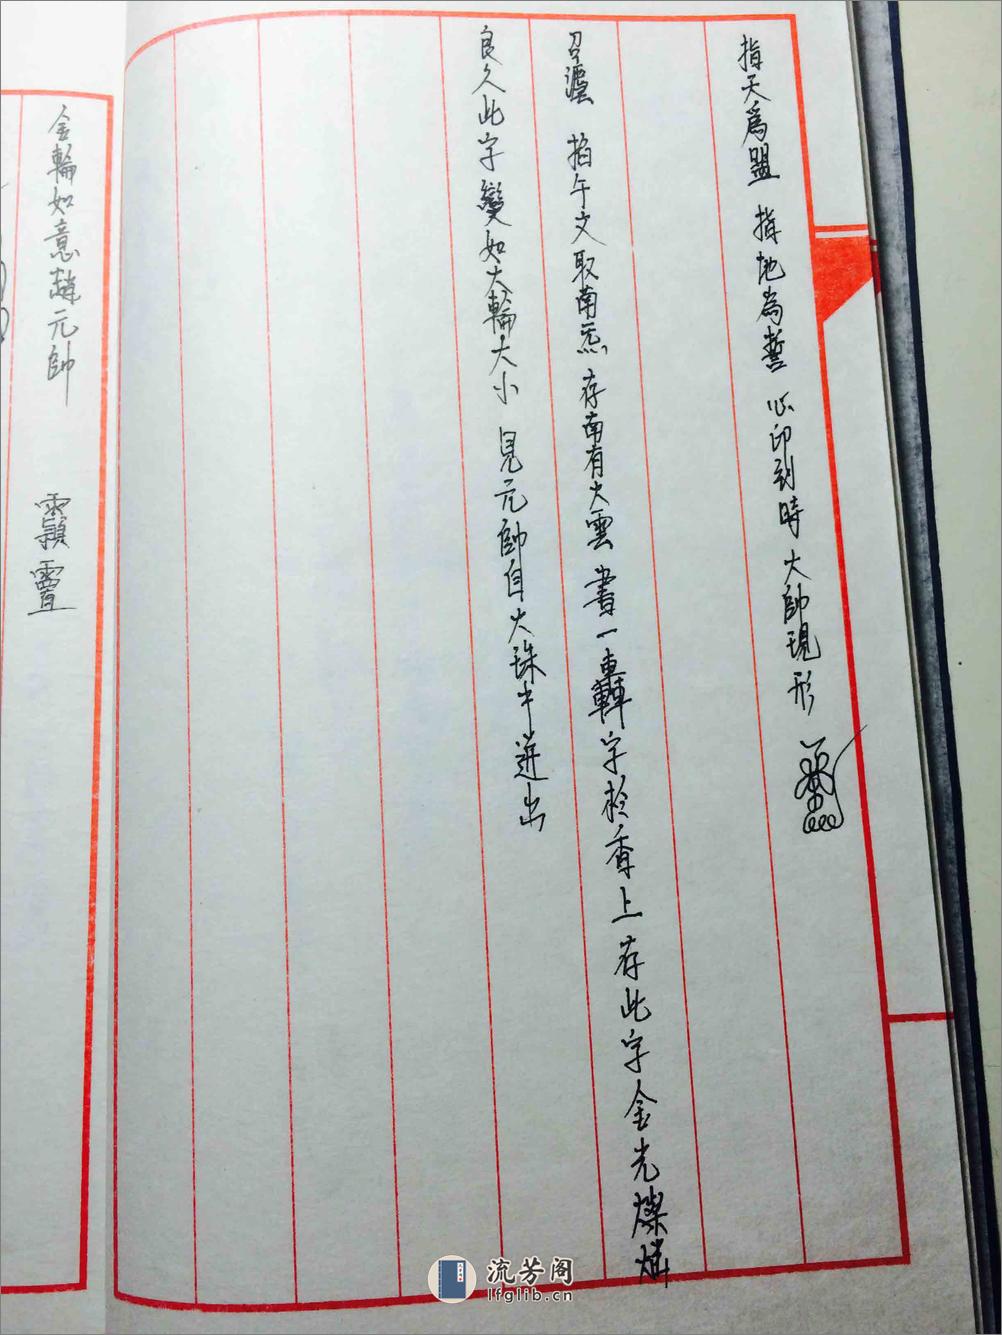 指天為盟 指地為誓 心印到時 大帥現形
召 掐午文取南炁 存南有火雲 書一轟字於香上存此字金光燦爛
良久此字變如大輪大小 見元帥自火珠中迸出
金輪如意趙元帥
流芳阁
lfglib.cn